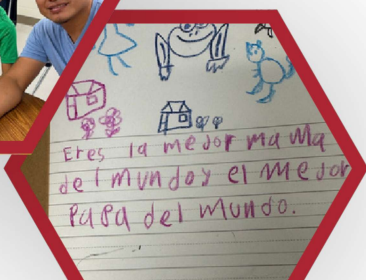 Eres la mejor mama
del mundo y el mejor
Papa del mundo.